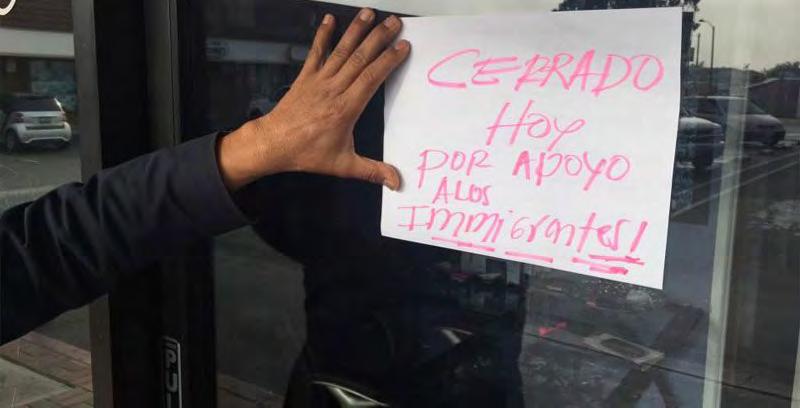 CERRADO
HOY
POR APOYO
A LOS
Immigrantes!
PU